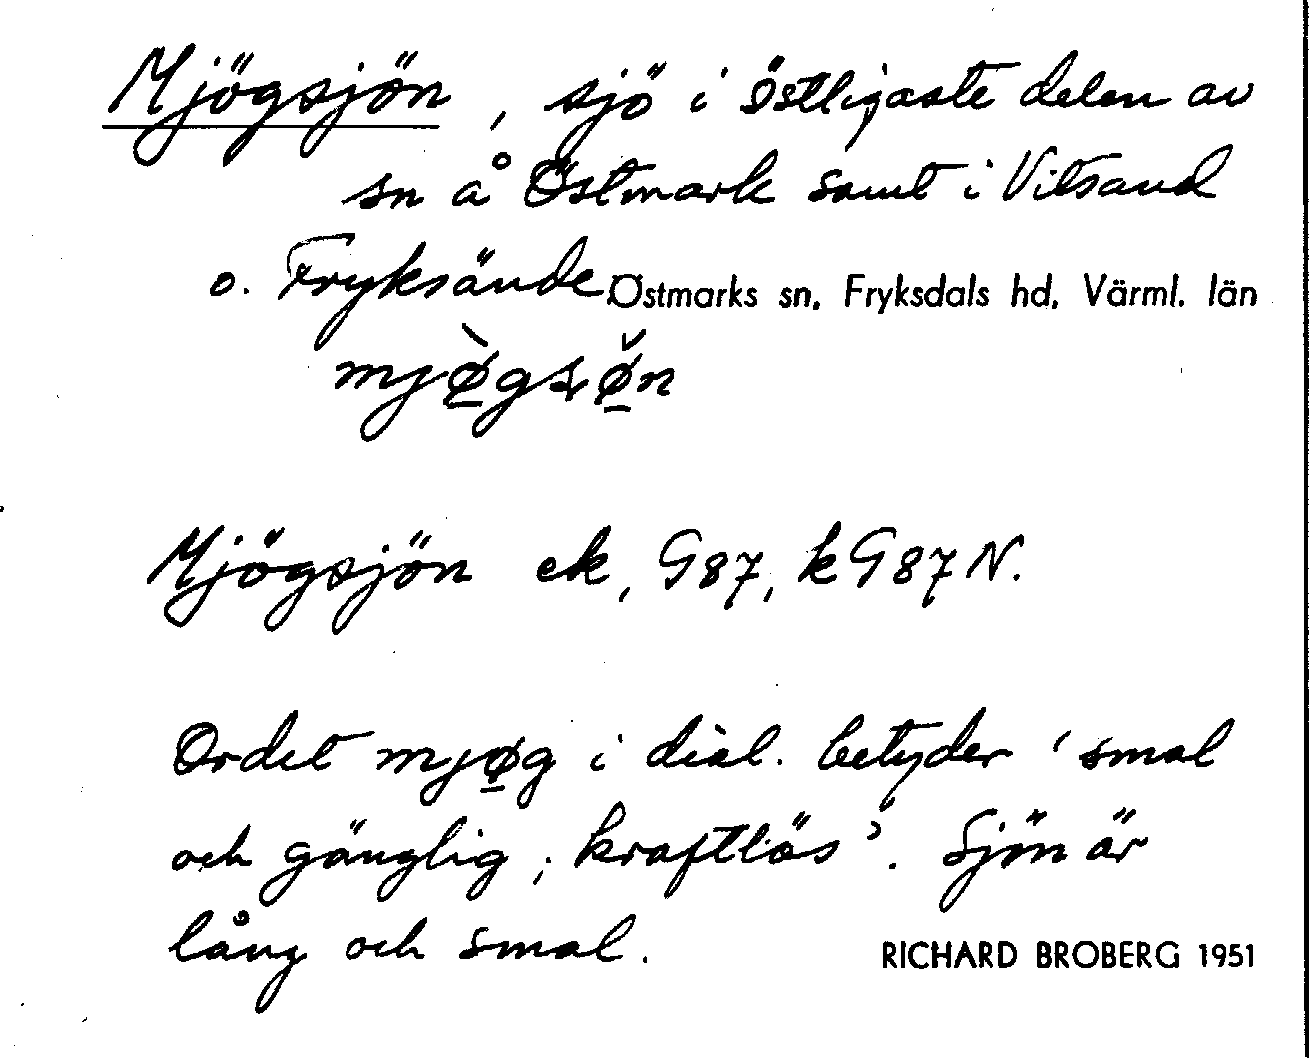 Mjögsjön, sjö i östligaste delen av
sn å Östmark samt i Vitsand
o. Fryksände Östmarks sn, Fryksdals hd, Värml. län
mjø̲̀gsø̲̌n
Mjögsjön ek, G87, kG87N.
Ordet mjø̲g i dial. betyder 'smal
och gänglig; kraftlös'. Sjön är
lång och smal.
RICHARD BROBERG 1951